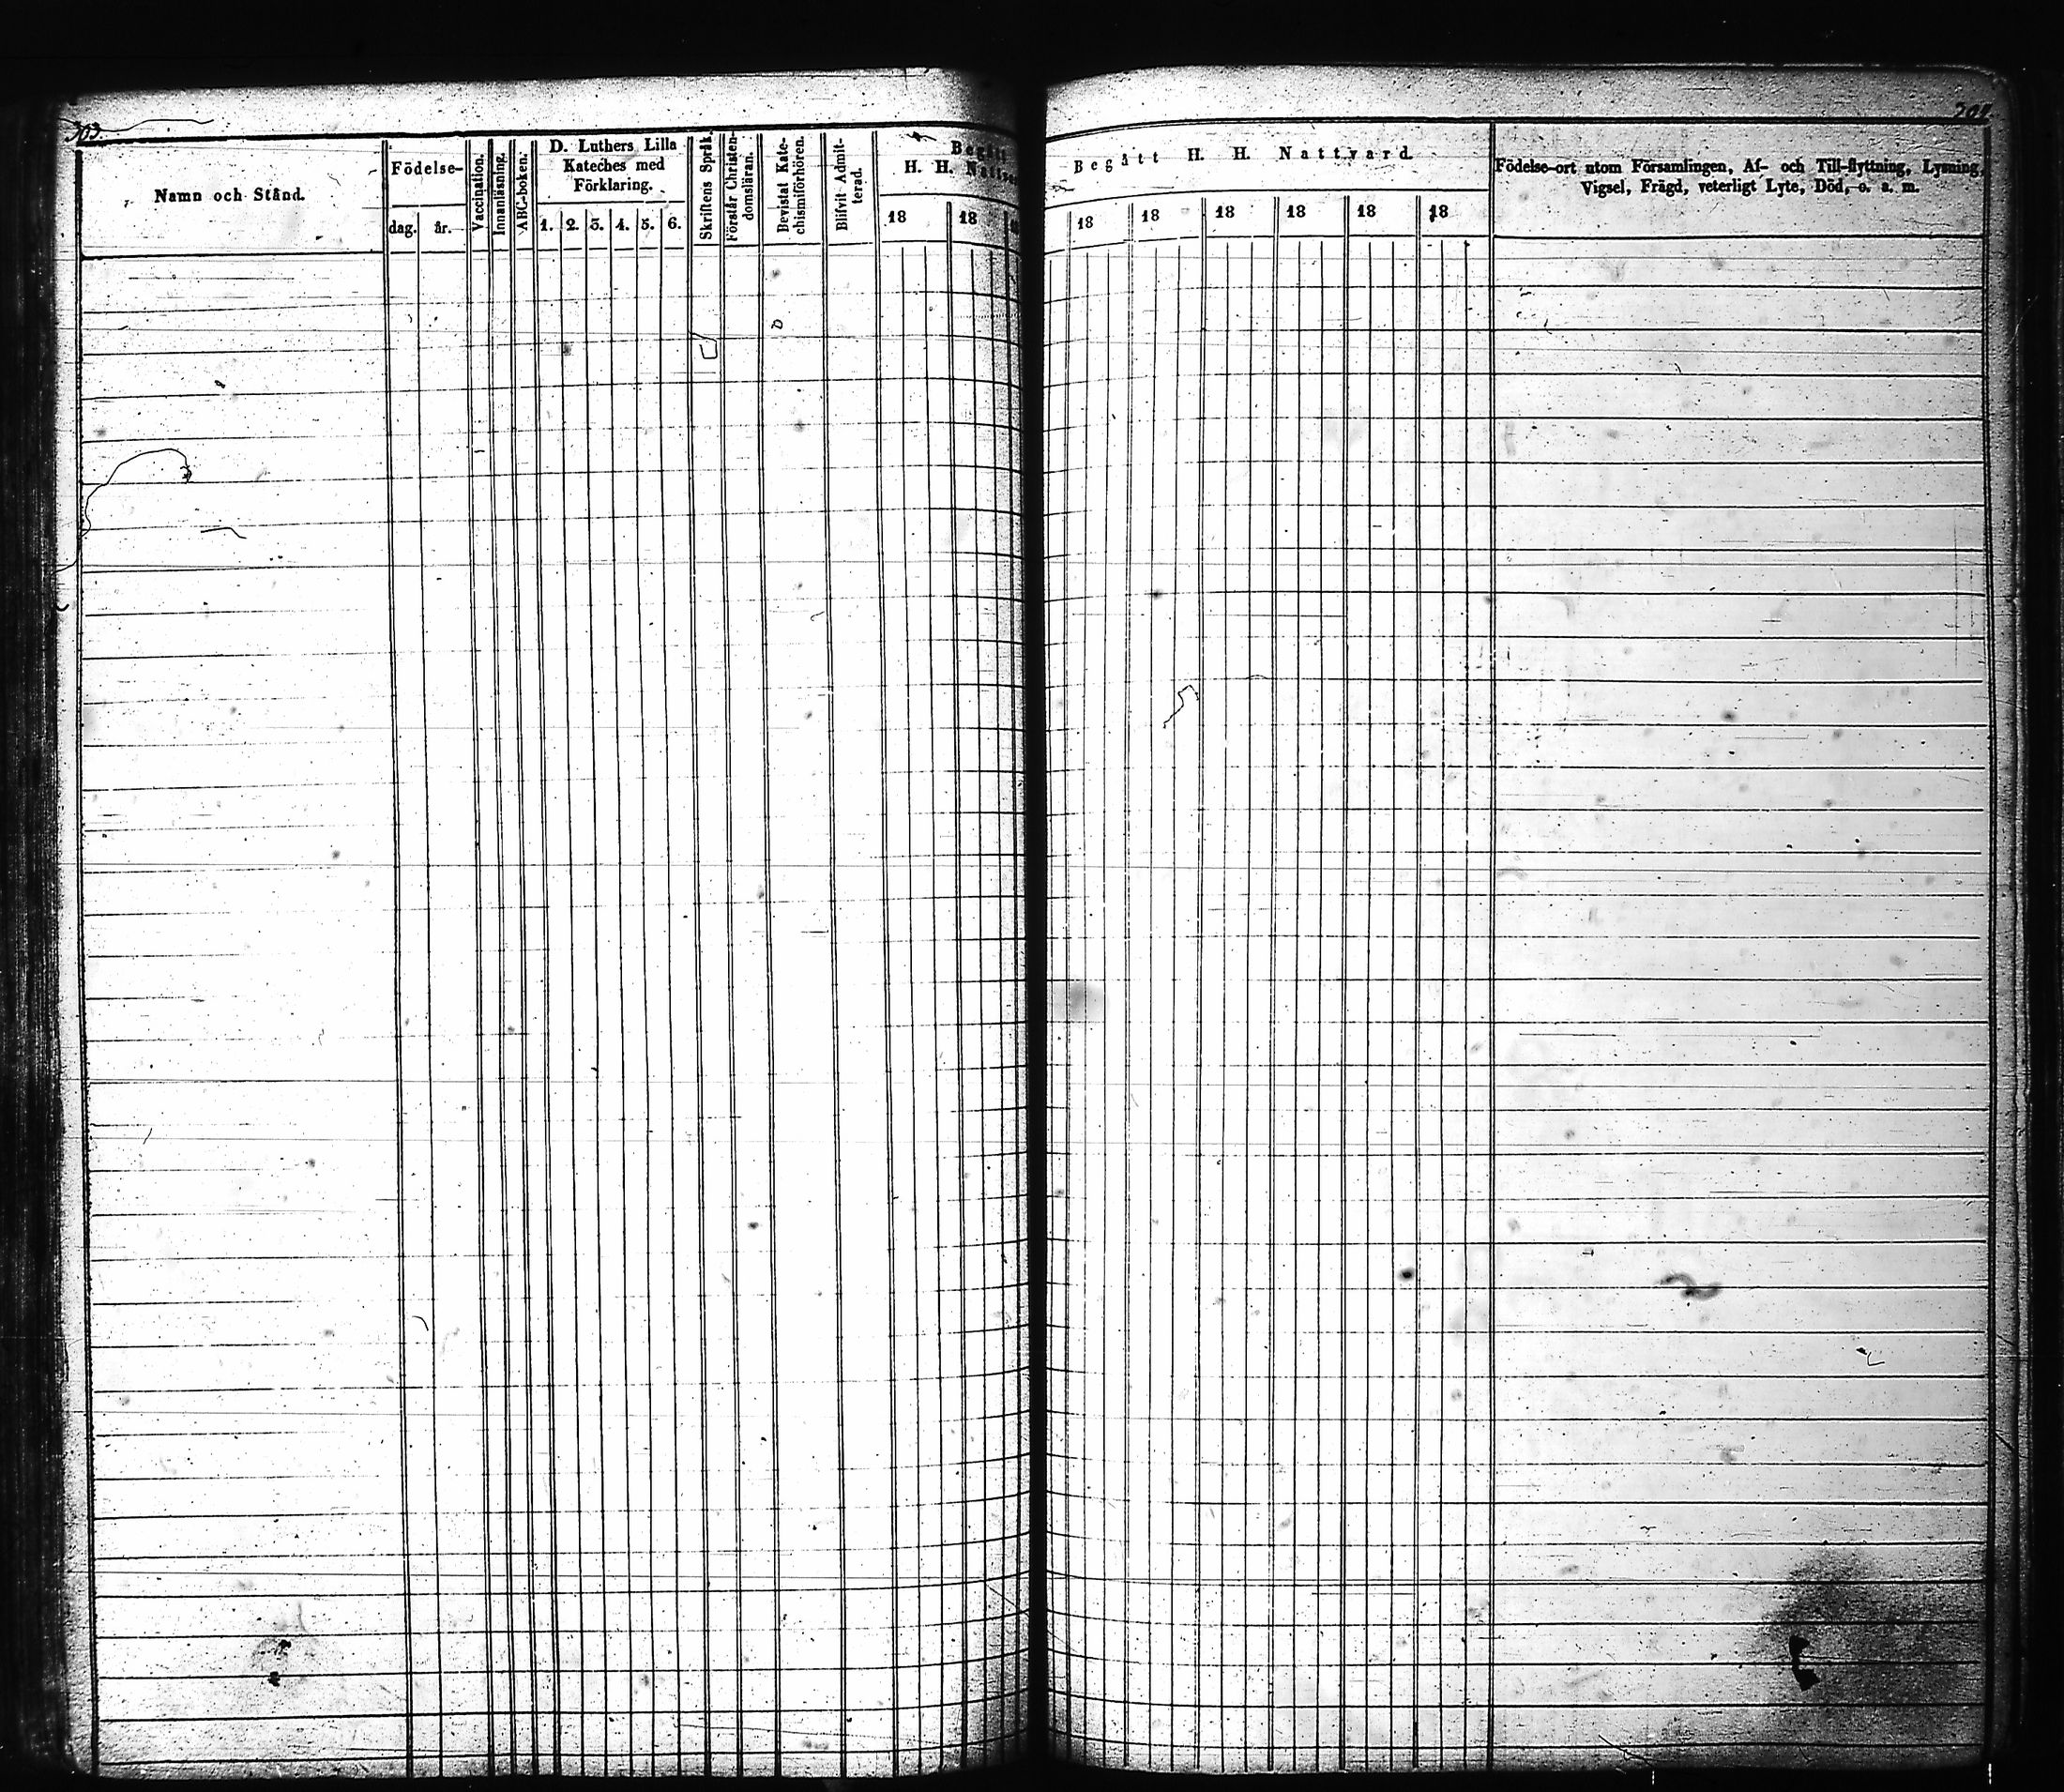 303
Namn och Stånd.
Födelse-
dag.
år.
Vaccination.
Innanläsning.
ABC-boken.
D. Luthers Lilla
Kateches med
Förklaring.
1. 2. 3. 4. 5. 6.
Skriftens Språk.
Förstår Christen-
domsläran.
Bevistat Kate-
chismiförhören.
Blifvit Admit-
terad.
Begått
H. H. Nattv
18 18
304
Begått H. H. Nattvard.
18 18 18 18 18 18
Födelse-ort utom Församlingen, Af- och Till-flyttning, Lysning,
Vigsel, Frägd, veterligt Lyte, Död, o. s. m.